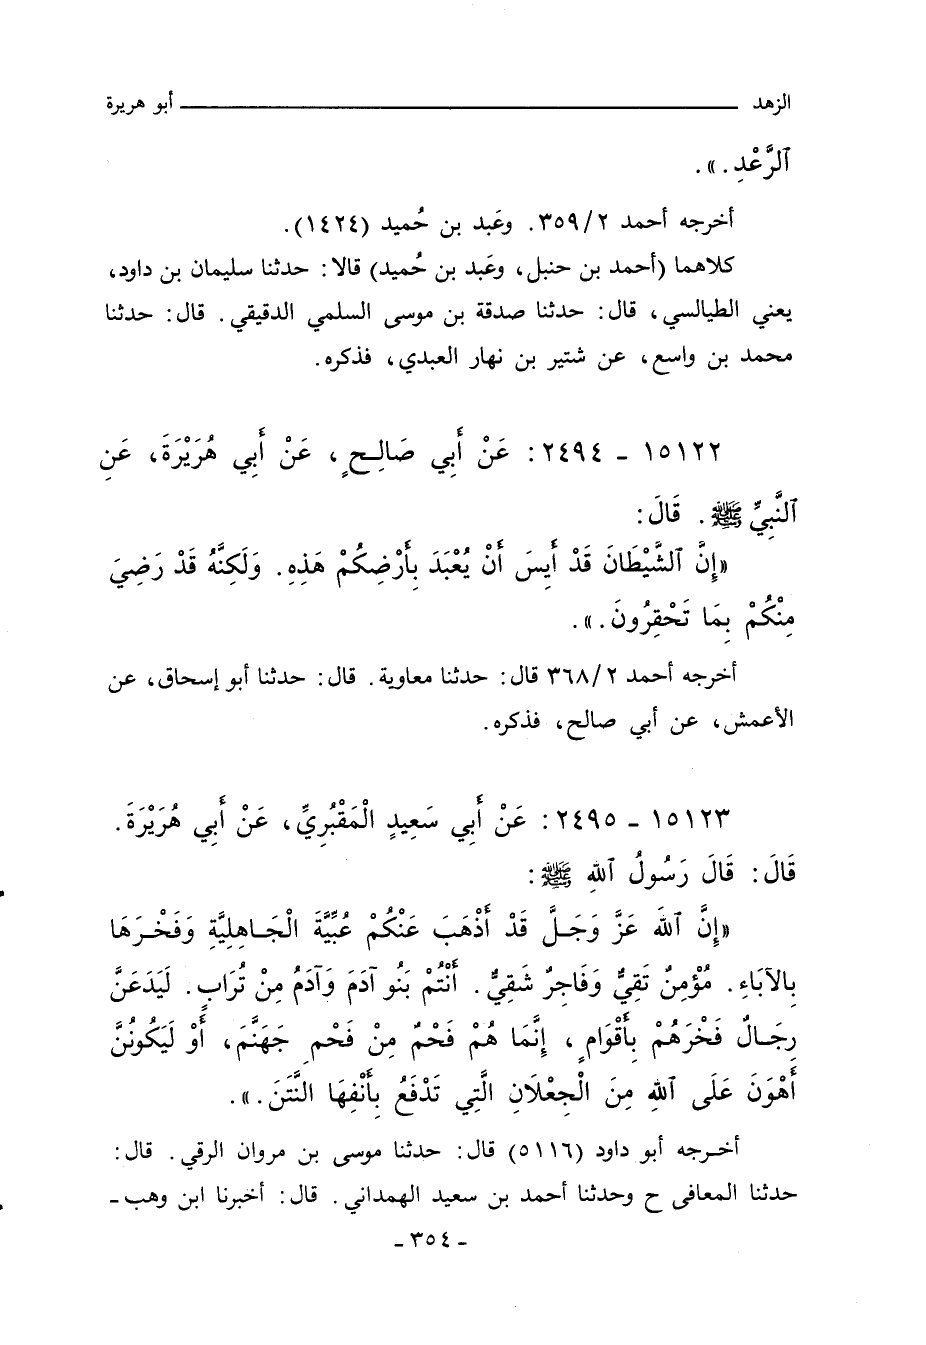 الزهد ــــــــــــ أبو هريرة
ٱلرَّعْدِ . » .
أخرجه أحمد ٣٥٩/٢. وعَبد بن حُميد (١٤٢٤).
كلاهما (أحمد بن حنبل، وعَبد بن حُميد) قالا: حدثنا سليمان بن داود،
يعني الطيالسي، قال: حدثنا صدقة بن موسى السلمي الدقيقي. قال: حدثنا
محمد بن واسع، عن شتير بن نهار العبدي، فذكره.
١٥١٢٢ - ٢٤٩٤: عَنْ أَبِي صَالِحٍ، عَنْ أَبِي هُرَيْرَةَ، عَنِ
ٱلنَّبِيِّ ﷺ. قَالَ:
«إِنَّ ٱلشَّيْطَانَ قَدْ أَيِسَ أَنْ يُعْبَدَ بِأَرْضِكُمْ هَذِهِ. وَلَكِنَّهُ قَدْ رَضِيَ
مِنْكُمْ بِمَا تَحْقِرُونَ . » .
أخرجه أحمد ٣٦٨/٢ قال: حدثنا معاوية. قال: حدثنا أبو إسحاق، عن
الأعمش، عن أبي صالح، فذكره.
١٥١٢٣ - ٢٤٩٥: عَنْ أَبِي سَعِيدٍ الْمَقْبُرِيِّ، عَنْ أَبِي هُرَيْرَةَ.
قَالَ: قَالَ رَسُولُ ٱللهِ ﷺ:
«إِنَّ ٱللهَ عَزَّ وَجَلَّ قَدْ أَذْهَبَ عَنْكُمْ عُبِّيَّةَ الْجَاهِلِيَّةِ وَفَخْرَهَا
بِالآبَاءِ. مُؤْمِنٌ تَقِيٌّ وَفَاجِرٌ شَقِيٌّ. أَنْتُمْ بَنُو آدَمَ وَآدَمُ مِنْ تُرَابٍ. لَيَدَعَنَّ
رِجَالٌ فَخْرَهُمْ بِأَقْوَامٍ، إِنَّمَا هُمْ فَحْمٌ مِنْ فَحْمِ جَهَنَّمَ، أَوْ لَيَكُونُنَّ
أَهْوَنَ عَلَى ٱللهِ مِنَ الْجِعْلَانِ الَّتِي تَدْفَعُ بِأَنْفِهَا النَّتَنَ . » .
أخرجه أبو داود (٥١١٦) قال: حدثنا موسى بن مروان الرقي. قال:
حدثنا المعافى ح وحدثنا أحمد بن سعيد الهمداني. قال: أخبرنا ابن وهب-
- ٣٥٤ -